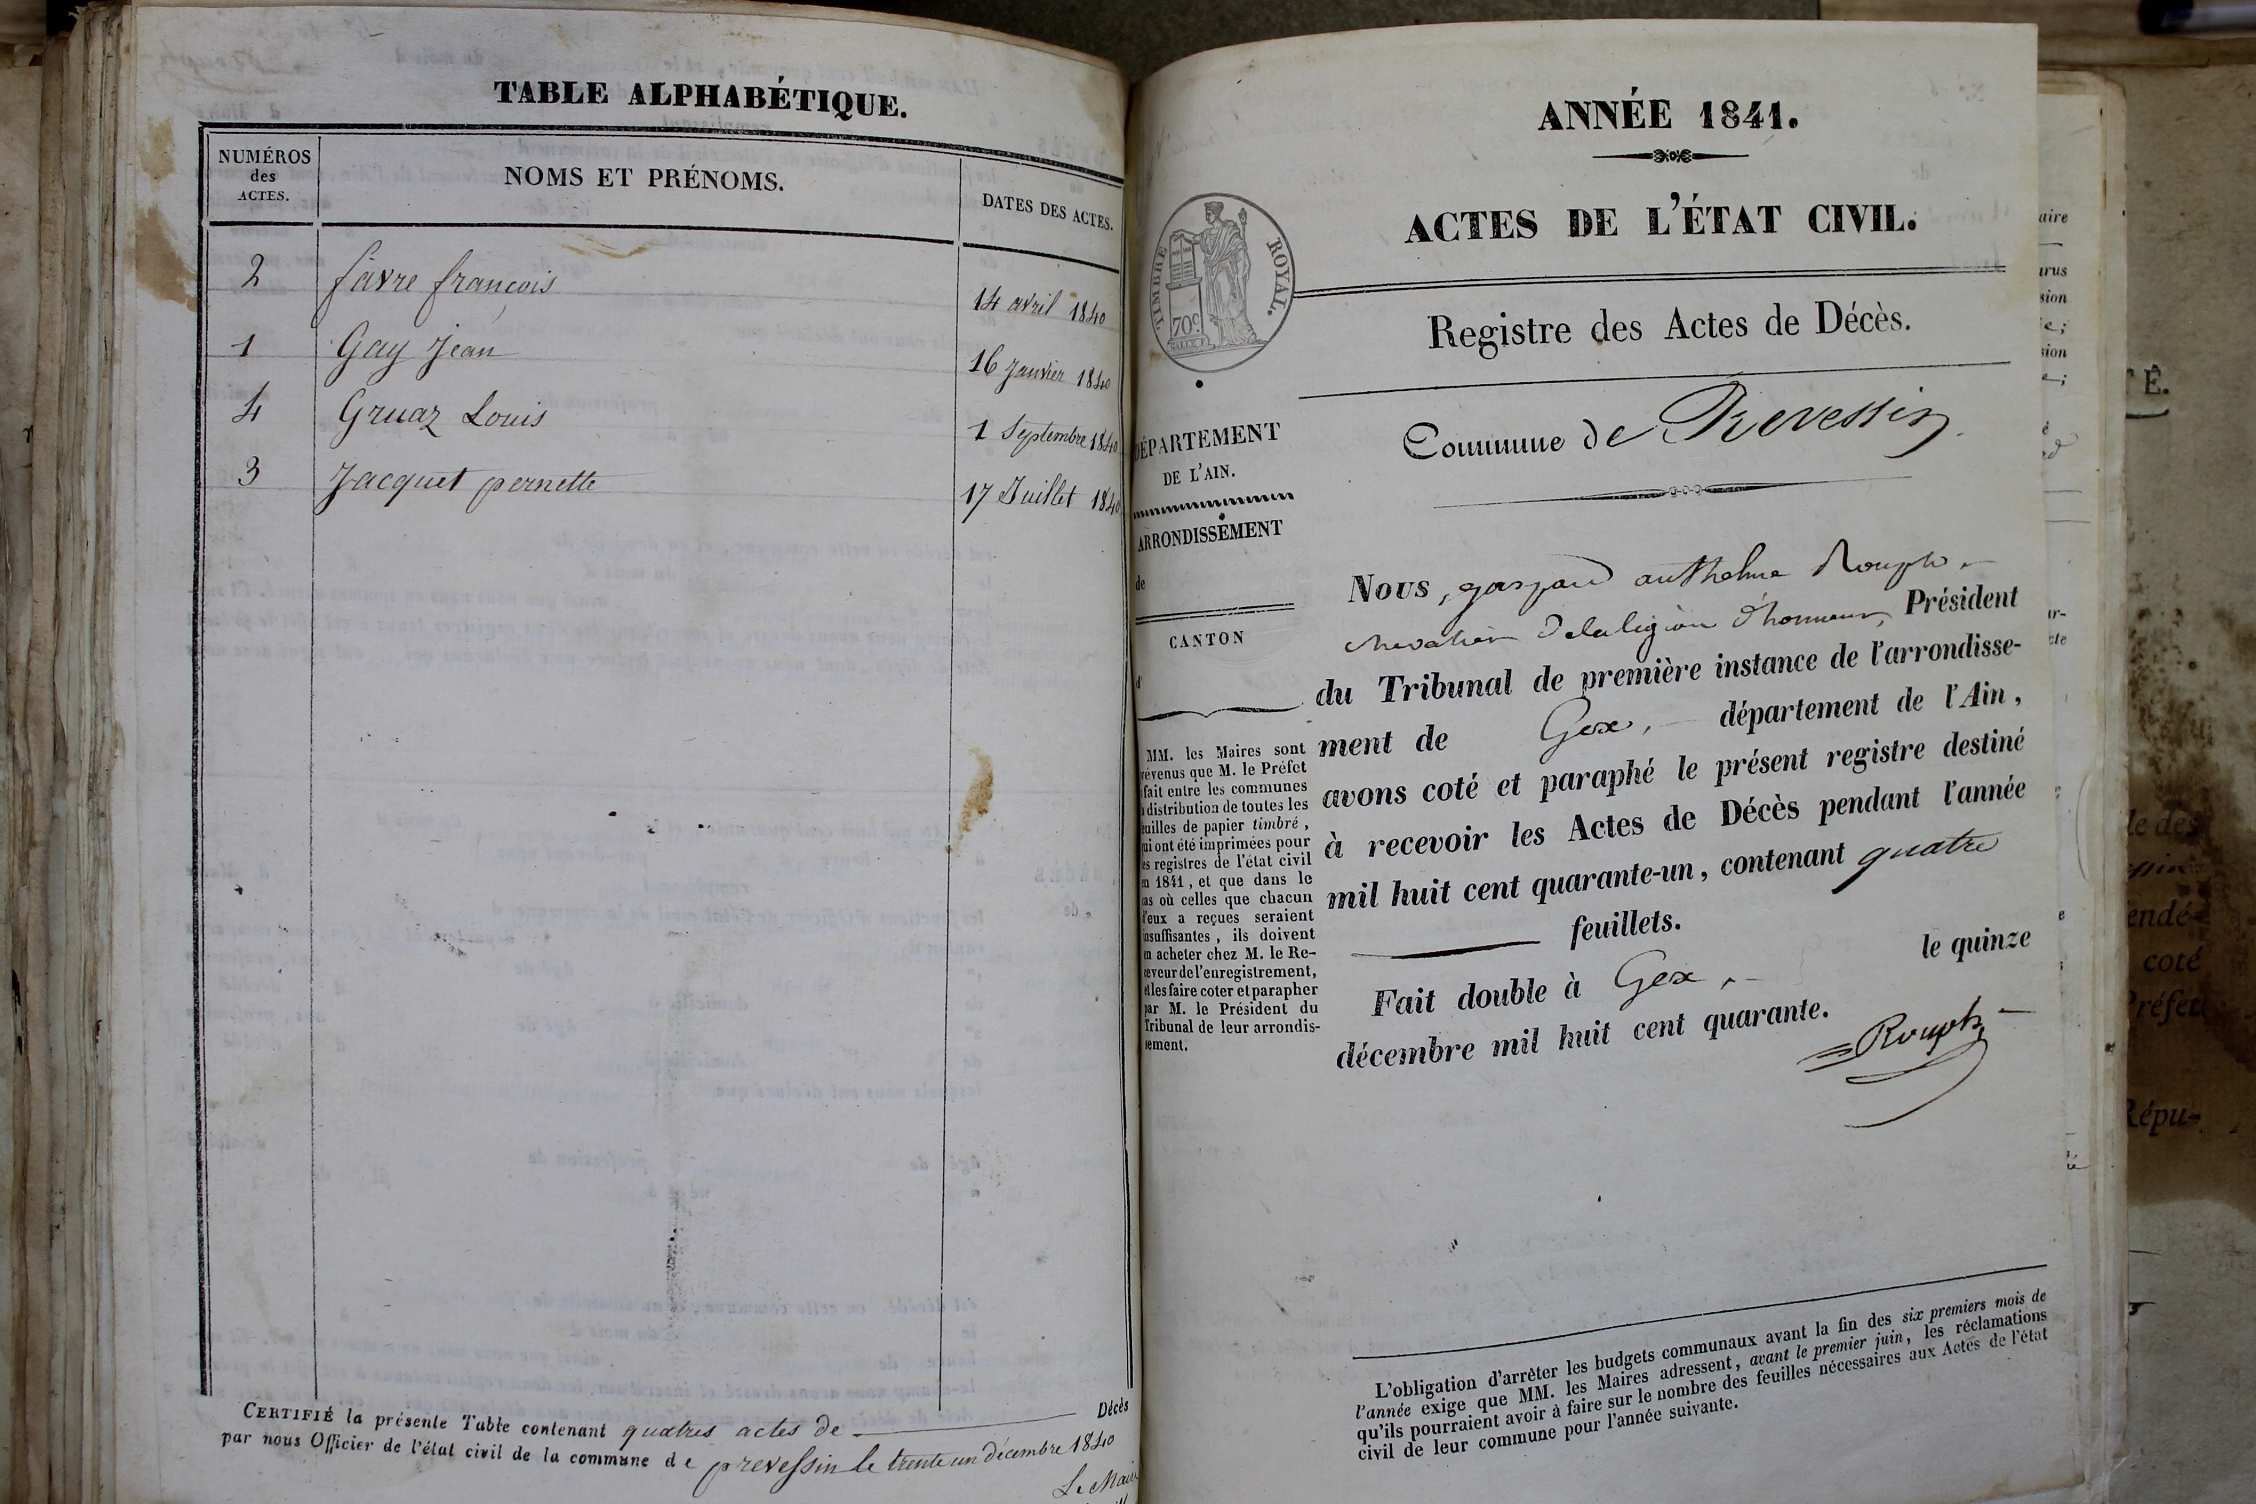 TABLE ALPHABÉTIQUE.
NUMÉROS
des
ACTES.
NOMS ET PRÉNOMS.
DATES DES ACTES.
2 favre françois 14 avril 1840
1 Gay Jean 16 Janvier 1840
4 Gruaz Louis 1 Septembre 1840
3 Jacquet pernette 17 Juillet 1840
CERTIFIÉ la présente Table contenant quatres actes de Décès
par nous Officier de l'état civil de la commune de prevessin le trente un décembre 1840
Le Maire
ANNÉE 1841.
ACTES DE L'ÉTAT CIVIL.
TIMBRE ROYAL.
70c.
Registre des Actes de Décès.
Commune de Prevessin
DÉPARTEMENT
DE L'AIN.
ARRONDISSEMENT
de
CANTON
d'
MM. les Maires sont
révenus que M. le Préfet
fait entre les communes
distribution de toutes les
euilles de papier timbré,
ui ont été imprimées pour
es registres de l'état civil
n 1841, et que dans le
as où celles que chacun
d'eux a reçues seraient
insuffisantes, ils doivent
en acheter chez M. le Re-
ceveur de l'enregistrement,
et les faire coter et parapher
par M. le Président du
Tribunal de leur arrondis-
sement.
Nous, gaspard anthelme Rouph,
chevalier de la légion d'honneur, Président
du Tribunal de première instance de l'arrondisse-
ment de Gex, département de l'Ain,
avons coté et paraphé le présent registre destiné
à recevoir les Actes de Décès pendant l'année
mil huit cent quarante-un, contenant quatre
feuillets.
Fait double à Gex, le quinze
décembre mil huit cent quarante.
Rouph
L'obligation d'arrêter les budgets communaux avant la fin des six premiers mois de
l'année exige que MM. les Maires adressent, avant le premier juin, les réclamations
qu'ils pourraient avoir à faire sur le nombre des feuilles nécessaires aux Actes de l'état
civil de leur commune pour l'année suivante.